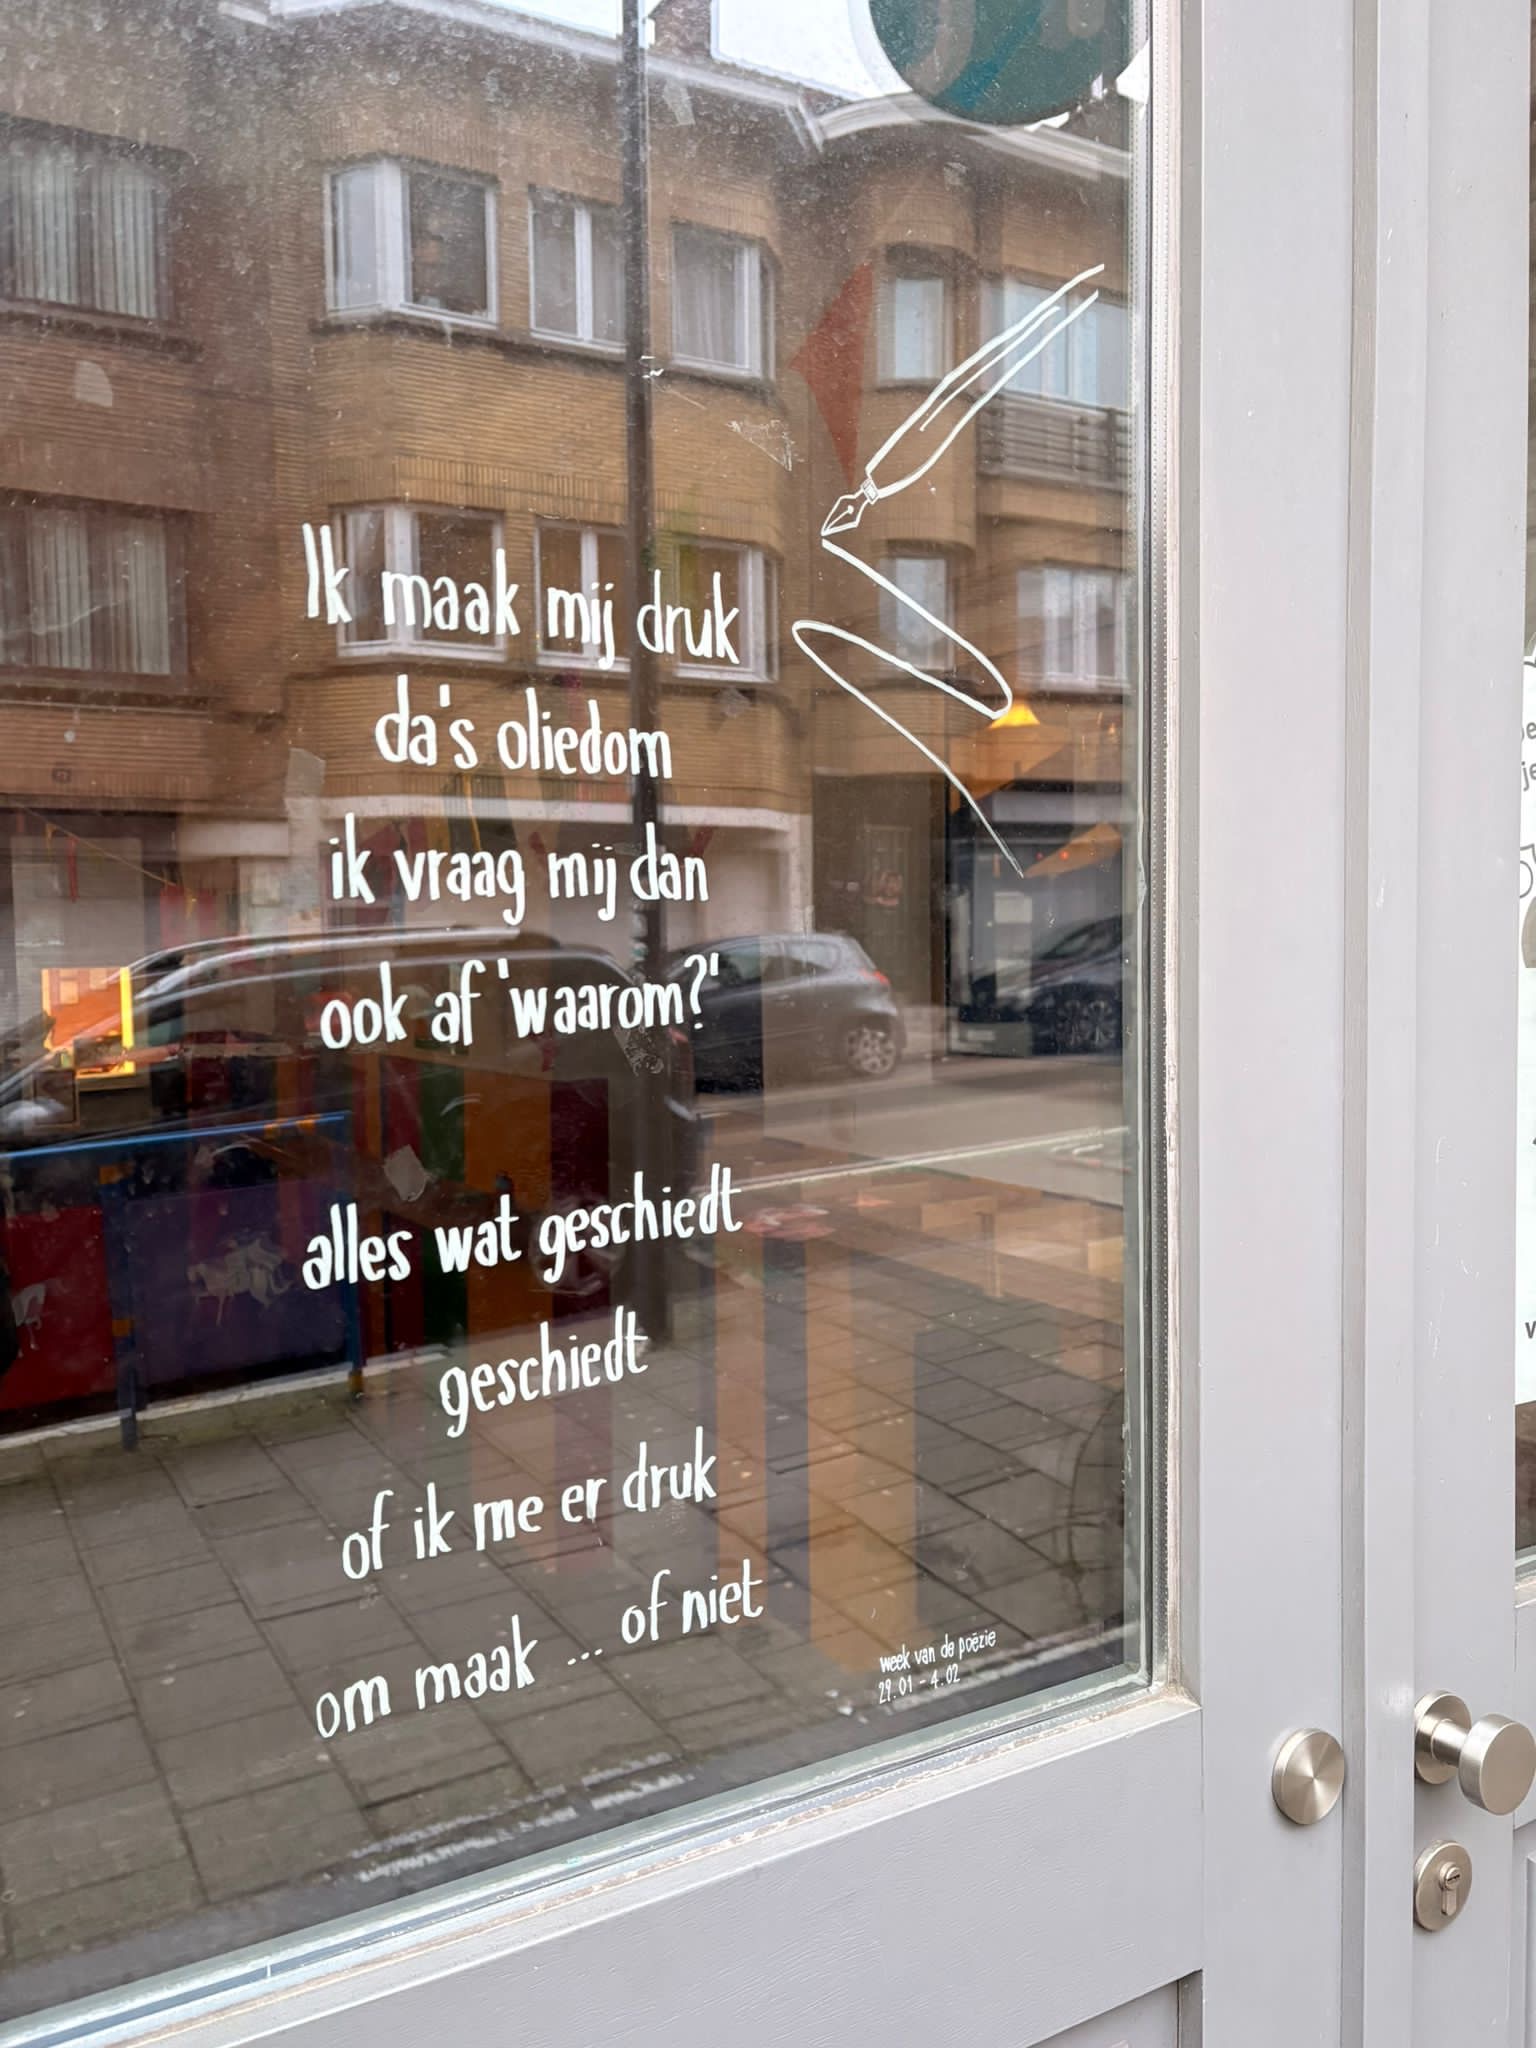 Ik maak mij druk
da's oliedom
ik vraag mij dan
ook af 'waarom?'
alles wat geschiedt
geschiedt
of ik me er druk
om maak ... of niet
week van de poëzie
29.01 - 4.02